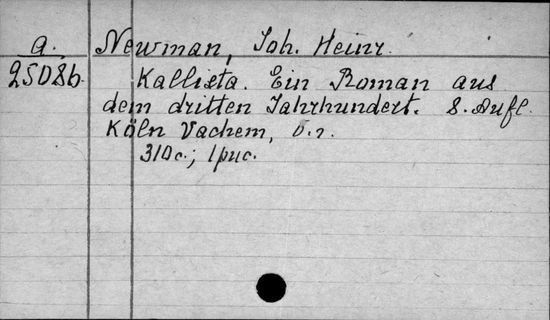 a. Newman, Joh. Heinr.
25086. Kallista. Ein Roman aus
dem dritten Jahrhundert. 8. Aufl.
Köln Bachem, o.J.
310c.; 1рис.